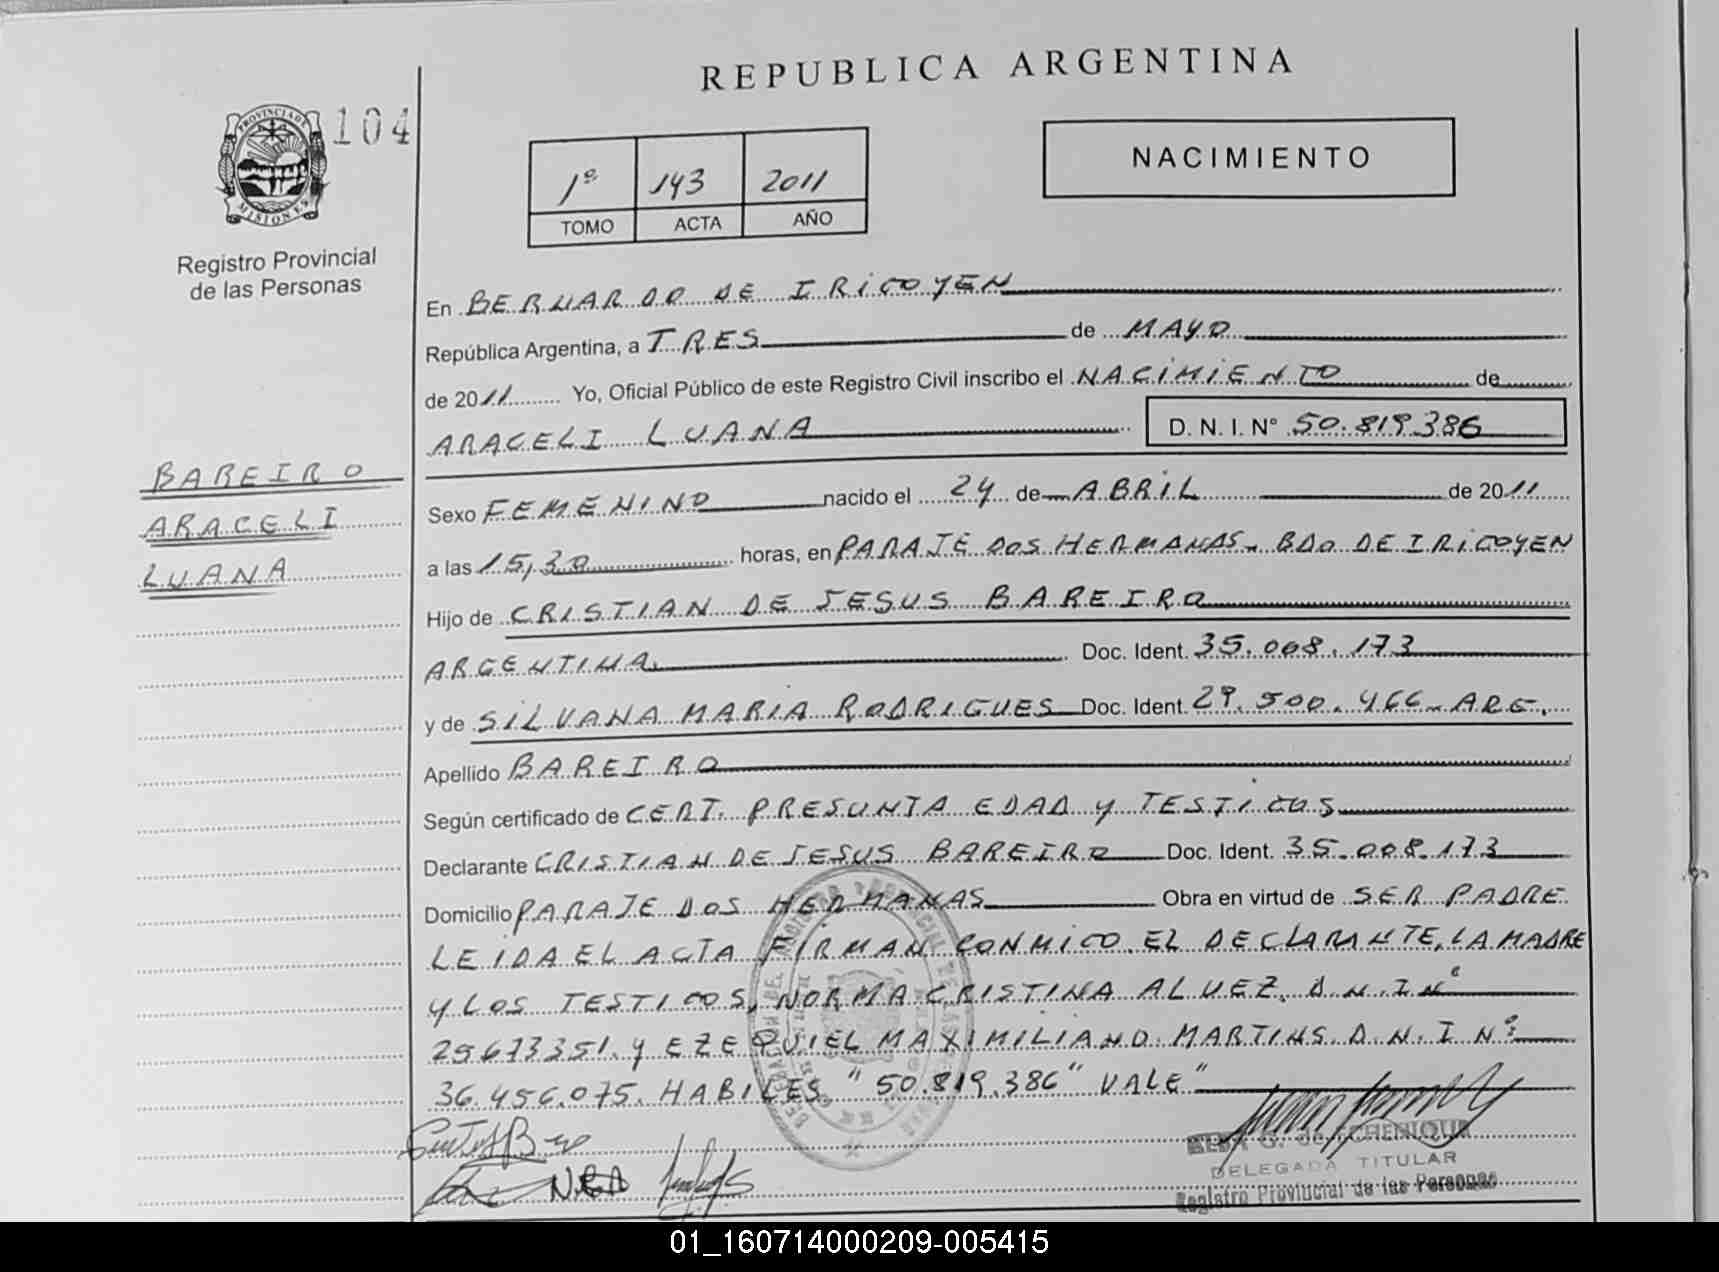 REPUBLICA ARGENTINA
PROVINCIA DE
MISIONES
104
Registro Provincial
de las Personas
1º 143 2011
TOMO ACTA AÑO
NACIMIENTO
En BERNARDO DE IRIGOYEN
República Argentina, a TRES de MAYO
de 2011 Yo, Oficial Público de este Registro Civil inscribo el NACIMIENTO de
ARACELI LUANA D. N. I. Nº 50.819.386
BAREIRO
ARACELI
LUANA
Sexo FEMENINO nacido el 24 de ABRIL de 2011
a las 15,30 horas, en PARAJE DOS HERMANAS - BDO DE IRIGOYEN
Hijo de CRISTIAN DE JESUS BAREIRO
ARGENTINA. Doc. Ident. 35.008.173
y de SILVANA MARIA RODRIGUES Doc. Ident. 29.500.466 - ARG.
Apellido BAREIRO
Según certificado de CERT. PRESUNTA EDAD y TESTIGOS
Declarante CRISTIAN DE JESUS BAREIRO Doc. Ident. 35.008.173
Domicilio PARAJE DOS HERMANAS Obra en virtud de SER PADRE
LEIDA EL ACTA FIRMAN CONMIGO EL DECLARANTE, LA MADRE
Y LOS TESTIGOS, NORMA CRISTINA ALVEZ, D.N.I Nº
29673351. y EZEQUIEL MAXIMILIANO MARTINS D.N.I Nº
36.456.075. HABILES "50.819.386" VALE"
ELBA G. de ECHENIQUE
DELEGADA TITULAR
Registro Provincial de las Personas
01_160714000209-005415